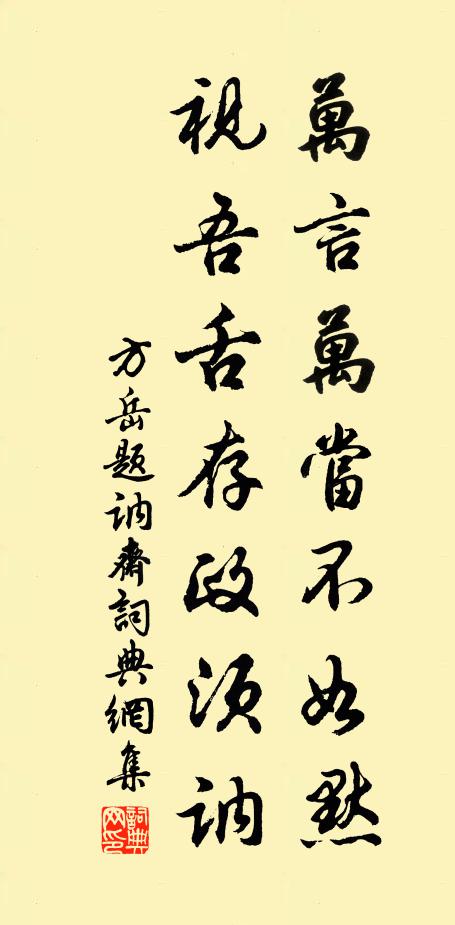 萬言萬當不如默
視吾舌存政須訥
方岳題訥齋詞典網集
詞典网印